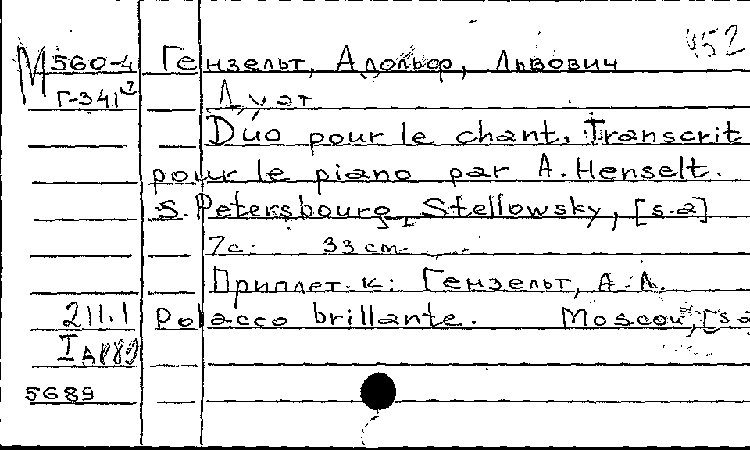 452
М 560-4 Гензельт, Адольф, Львович
Г-341 Дуэт
Duo pour le chant. Transcrit
pour le piano par A. Henselt.
S. Petersbourg, Stellowsky, [s.a]
7с. 33 cm.
Приплет. к: Гензельт, А. Л.
211.1 Polacco brillante. Moscou, [s a
I
5689